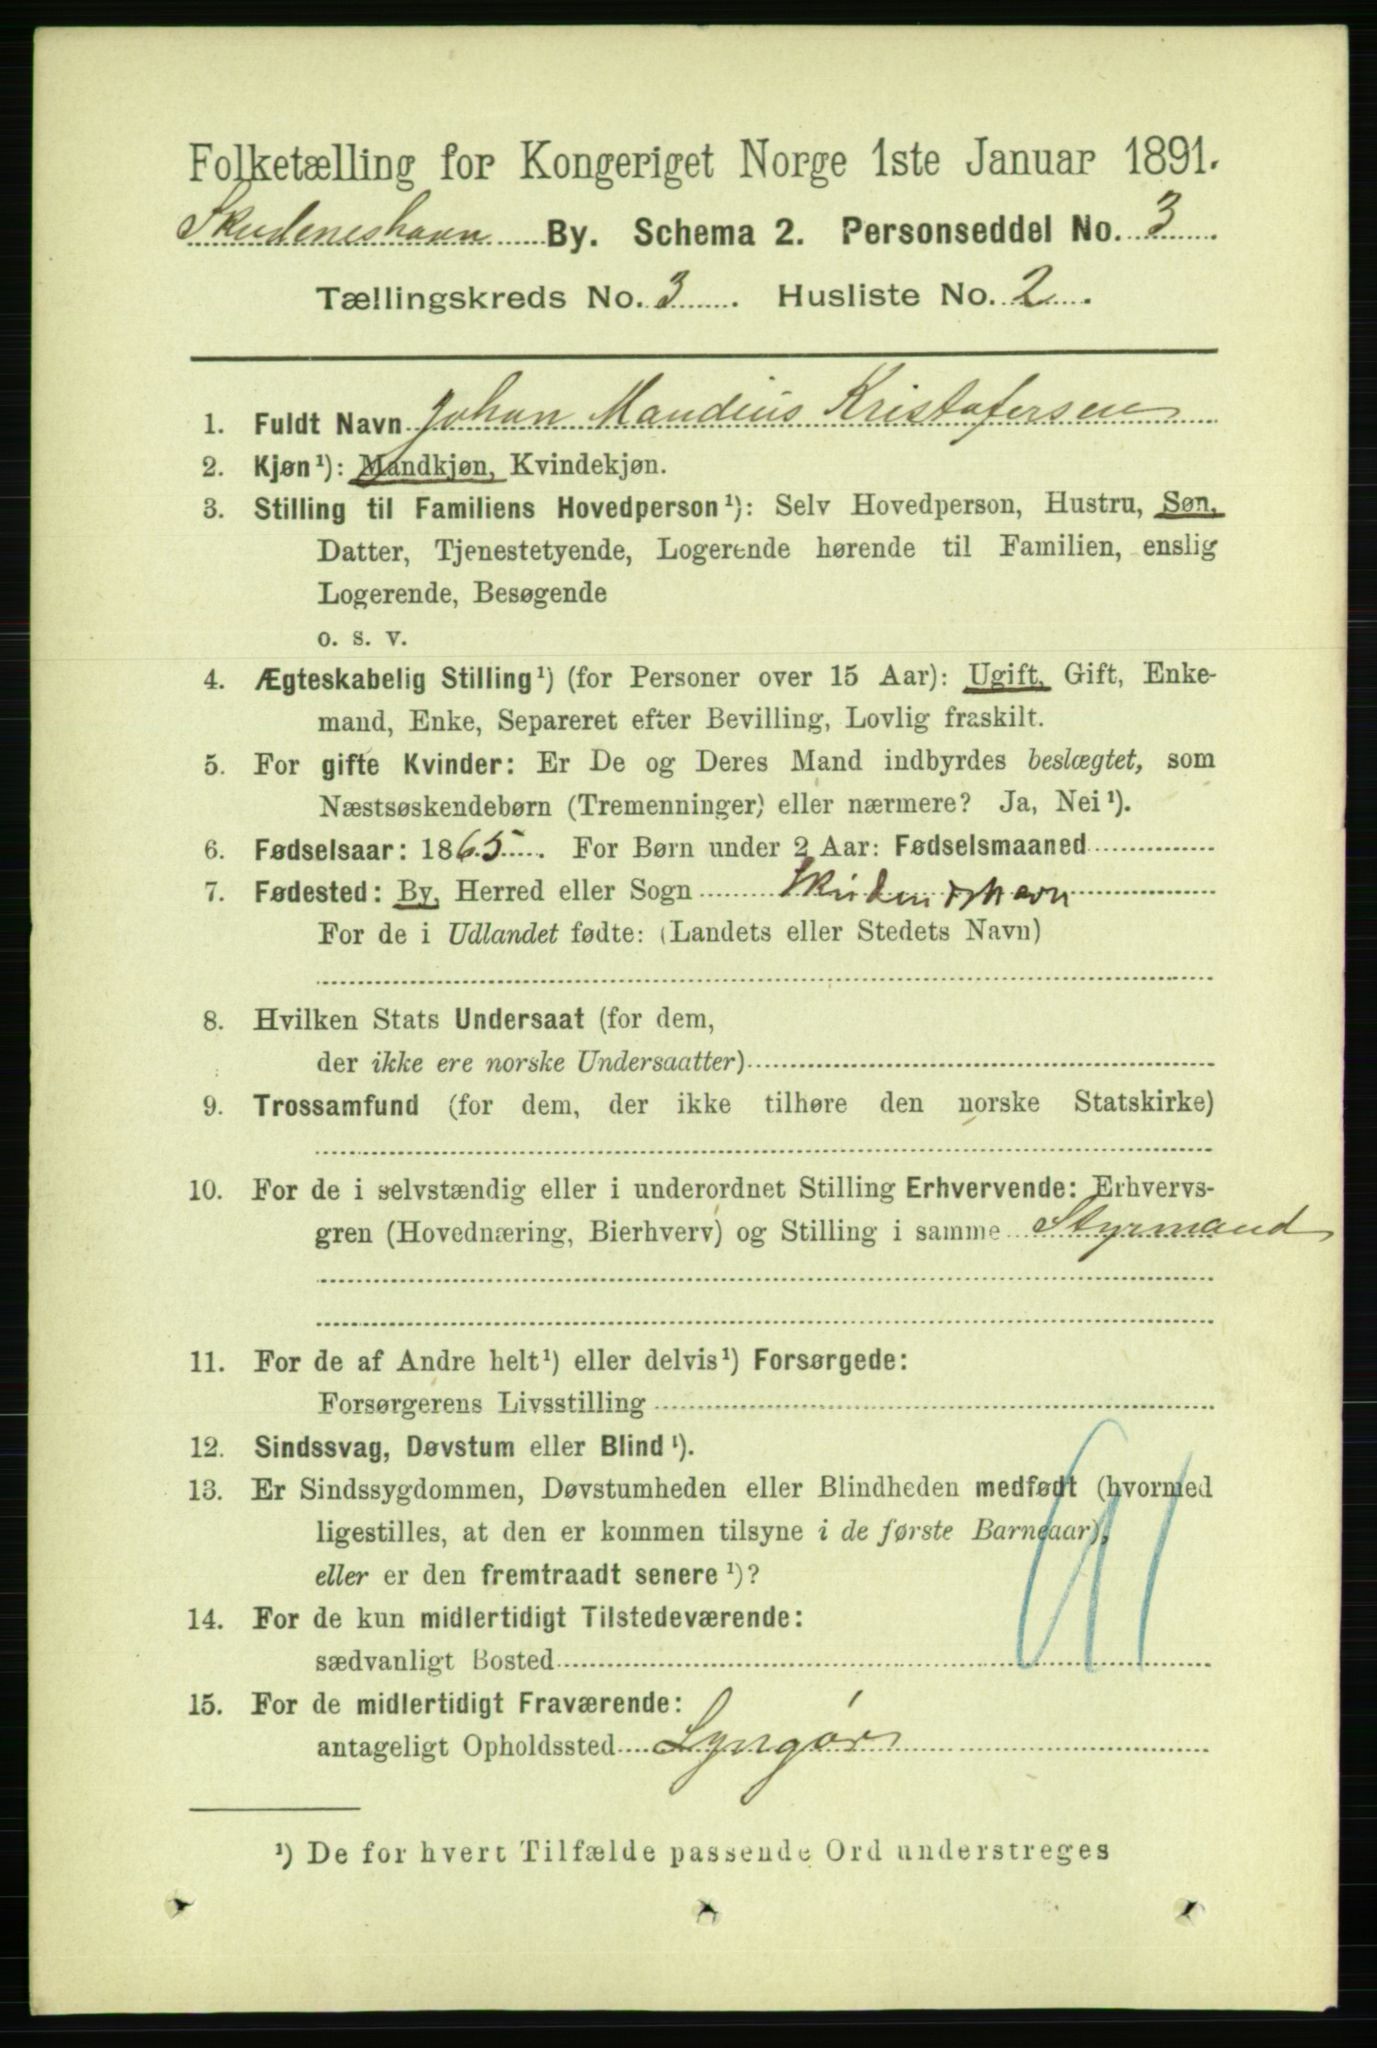 Folketælling for Kongeriget Norge 1ste Januar 1891.
Skudeneshavn By. Schema 2. Personseddel No. 3
Tællingskreds No. 3. Husliste No. 2.
1. Fuldt Navn Johan Mandius Kristofersen
2. Kjøn¹): Mandkjøn, Kvindekjøn.
3. Stilling til Familiens Hovedperson¹): Selv Hovedperson, Hustru, Søn,
Datter, Tjenestetyende, Logerende hørende til Familien, enslig
Logerende, Besøgende
o. s. v.
4. Ægteskabelig Stilling¹) (for Personer over 15 Aar): Ugift, Gift, Enke-
mand, Enke, Separeret efter Bevilling, Lovlig fraskilt.
5. For gifte Kvinder: Er De og Deres Mand indbyrdes beslægtet, som
Næstsøskendebørn (Tremenninger) eller nærmere? Ja, Nei¹).
6. Fødselsaar: 1865. For Børn under 2 Aar: Fødselsmaaned
7. Fødested: By, Herred eller Sogn Skudeneshavn
For de i Udlandet fødte: (Landets eller Stedets Navn)
8. Hvilken Stats Undersaat (for dem,
der ikke ere norske Undersaatter)
9. Trossamfund (for dem, der ikke tilhøre den norske Statskirke)
10. For de i selvstændig eller i underordnet Stilling Erhvervende: Erhvervs-
gren (Hovednæring, Bierhverv) og Stilling i samme Styrmand
11. For de af Andre helt¹) eller delvis¹) Forsørgede:
Forsørgerens Livsstilling
12. Sindssvag, Døvstum eller Blind¹).
13. Er Sindssygdommen, Døvstumheden eller Blindheden medfødt (hvormed
ligestilles, at den er kommen tilsyne i de første Barneaar),
eller er den fremtraadt senere¹)?
14. For de kun midlertidigt Tilstedeværende:
sædvanligt Bosted
15. For de midlertidigt Fraværende:
antageligt Opholdssted Lyngør
¹) De for hvert Tilfælde passende Ord understreges